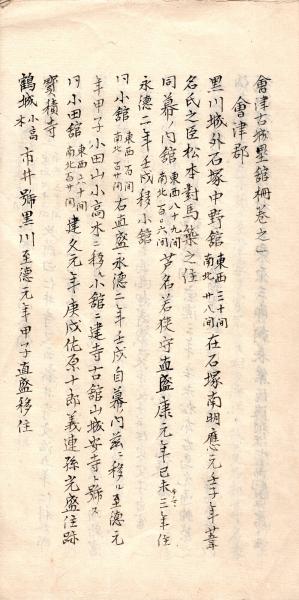 會津古城壘舘柵巻之一
會津郡
黒川城外石塚中野舘 東西三十間 南北廿八間 在石塚南明應元壬子年葦
名氏之臣松本對馬築之住
同幕ノ内舘 東西八十九間 南北百六間 芦名若狭守直盛康元年已未三年住
永德二年壬戌移小舘
同小舘 東西百間 南北百廿間 右直盛永德二年壬戌自幕ノ内茲ニ移ル至德元
年甲子小田山小高木ニ移ル小舘ニ建寺古舘山城安寺ト號ス
同小田舘 東西二十間 南北百廿間 建久元年庚戌佐原十郎義連孫光盛住跡
寳積寺
鶴城 小高木 市井號黒川至德元年甲子直盛移住